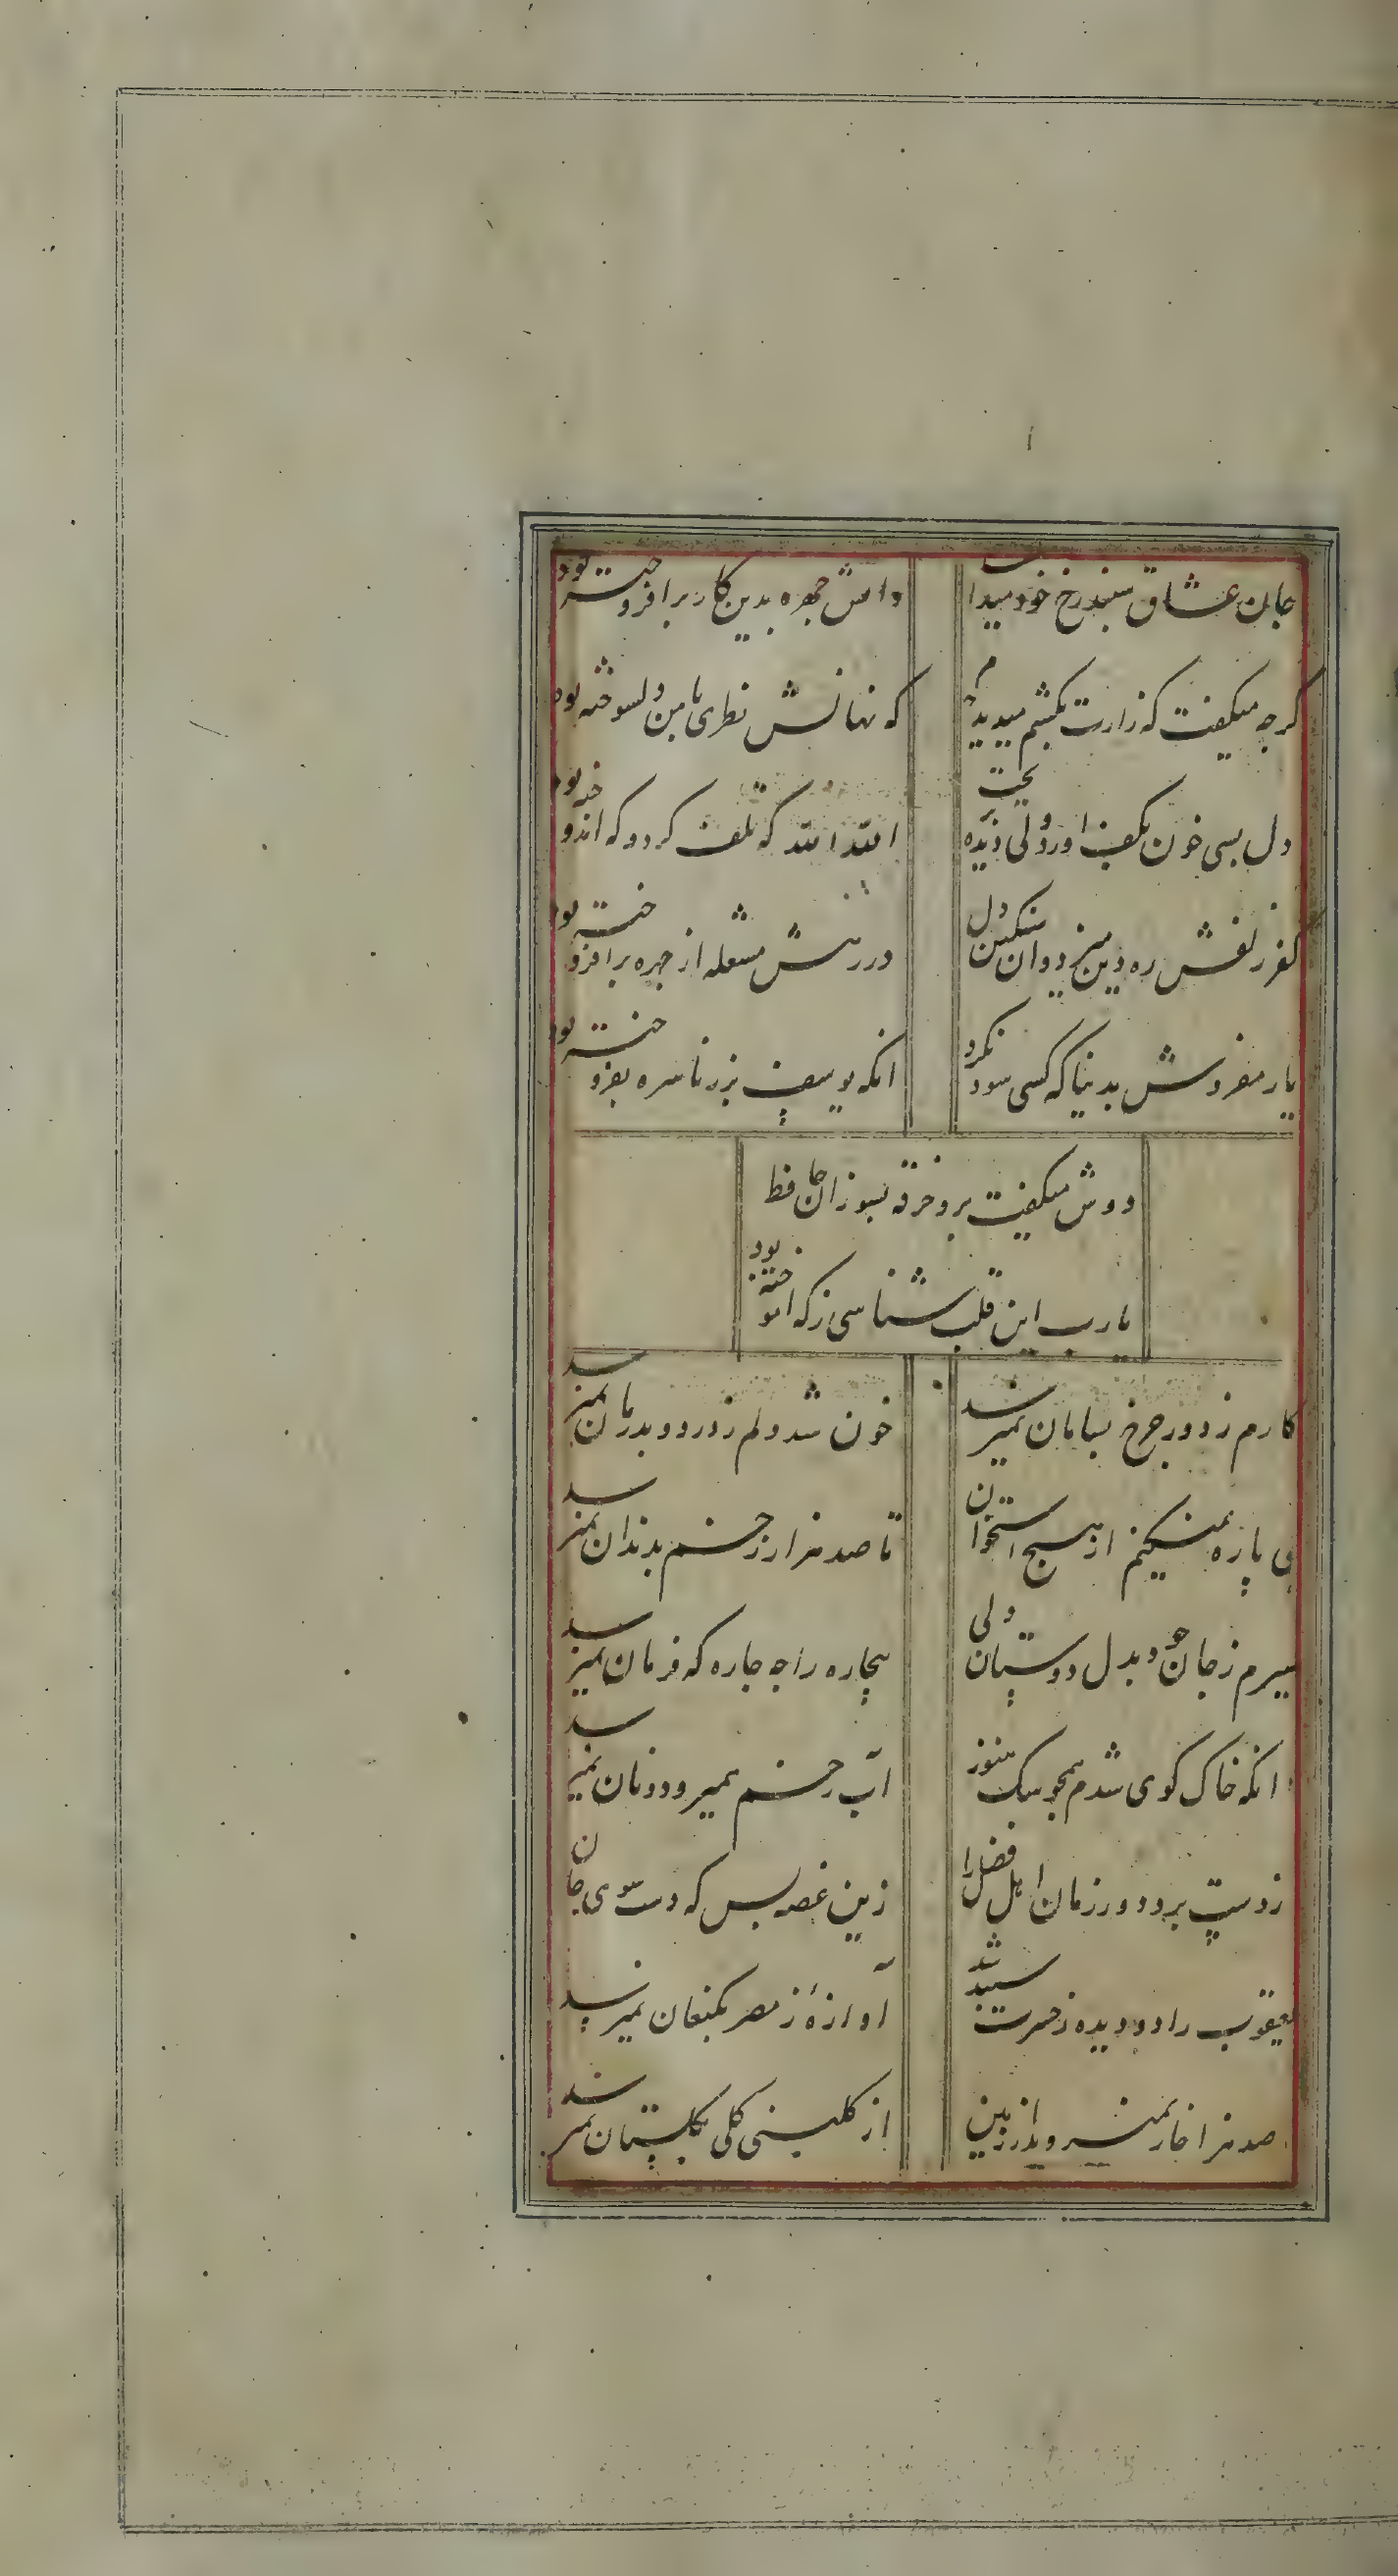 جان عشاق سپند رخ خود میدا
داتش چهره بدین کار برافروخته بود
گرچه میگفت که زارت بکشم میدیدم
که نهانش نظری با من دلسوخته بود
دل بسی خون بکف اورد ولی دیده بریخت
الله الله که تلف کرد و که اندوخته بود
کفر زلفش ره دین میزد و ان سنکین دل
در رهش مشعله از چهره برافروخته بود
یار مفروش بدنیا که کسی سود نکرد
انکه یوسف بزر ناسره بفروخته بود
دوش میگفت برو خرقه بسوزان حافظ
یارب این قلب شناسی ز که اموخته بود
کارم ز دور چرخ بسامان نمیرسد
خون شد دلم ز درد و بدرمان نمیرسد
پی پاره نمیکنم از هیچ استخوان
تا صد هزار زخم بدندان نمیرسد
سیرم ز جان خود بدل دوستان ولی
بیچاره را چه چاره که فرمان نمیرسد
انکه خاک کوی شدم همچو سک هنوز
آب رخم همیرود و نان نمیرسد
ز دست برد دور زمان اهل فضل را
زین غصه بس که دست سوی جان
یعقوب را دو دیده ز حسرت سپید شد
آوازۀ ز مصر بکنعان نمیرسد
صد هزار خار نمیروید از زمین
از کلبنی کلی بکلستان نمیرسد